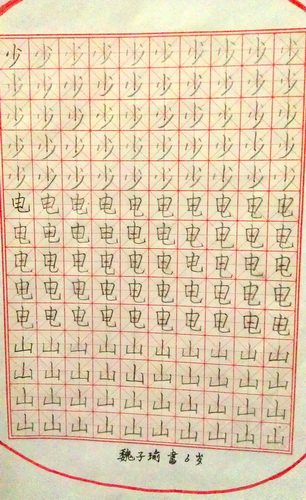 少少少少少少少少少少
少少少少少少少少少少
少少少少少少少少少少
少少少少少少少少少少
少少少少少少少少少少
电电电电电电电电电电
电电电电电电电电电电
电电电电电电电电电电
电电电电电电电电电电
电电电电电电电电电电
山山山山山山山山山山
山山山山山山山山山山
山山山山山山山山山山
山山山山山山山山山山
魏子瑜 書 6岁